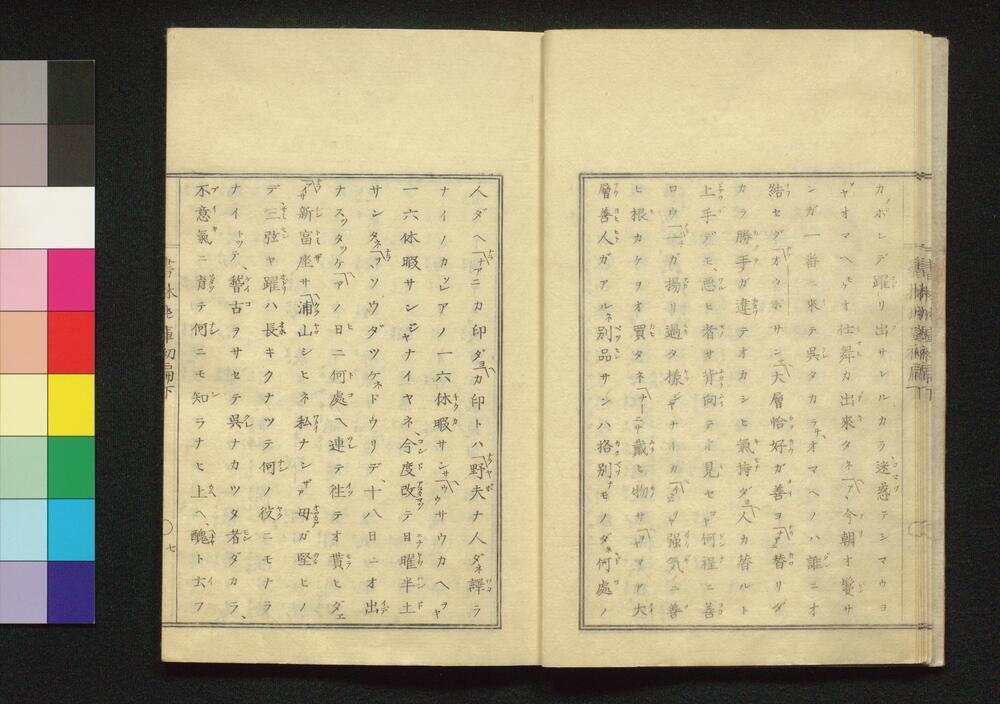 カノボレデ躍リ出サレルカラ迷惑テシマウヨ
ヤオマヘノオ仕舞カ出來タネ今朝オ髪サ
ンガ一畨ニ來テ呉タカラサオマヘノハ誰ニオ
結セダオクボサン大層恰好ガ善ヨ替リダ
カラ勝手ガ違テオカシヒ氣持ダヨ人カ替ルト
上手デモ悪ヒ者サ背向テオ見セヨヤ何程ニ善
ロウガ揚リ過タ様ジヤナイカ强気ニ善
ヒ根カケヲオ買タネナーニサ戴ヒ物サマア大
層善人ガアルネ別品サンハ格別ナモノダネ何處ノ
人ダヘナアニカ印ダヨカ印トハ野夫ナ人ダネ譯ラ
ナイノカツアノ一六休暇サンサウサウカヘ
一六休暇サンジヤナイヤネ今度改テ日曜半土
サンタネソウダツケネドウリデ十八日ニオ出
ナスツタツケアノ日ニ何處ヘ連テ往テオ貰ヒダヱ
新富座サ浦山シヒネ私ナンザア母ガ堅ヒノ
デ三弦ヤ躍ハ長キクナツテ何ノ役ニモナラ
ナイトツテ、稽古ヲサセテ呉ナカツタ者ダカラ、
不意氣ニ育テ何ニモ知ラナヒ上ヘ、醜ト玄フ
七